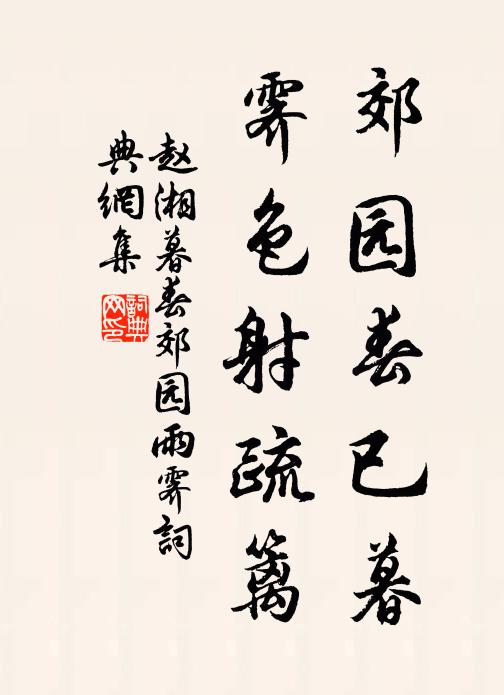 郊园春已暮
霁色射疏篱
赵湘暮春郊园雨霁詞
典網集
詞典网印